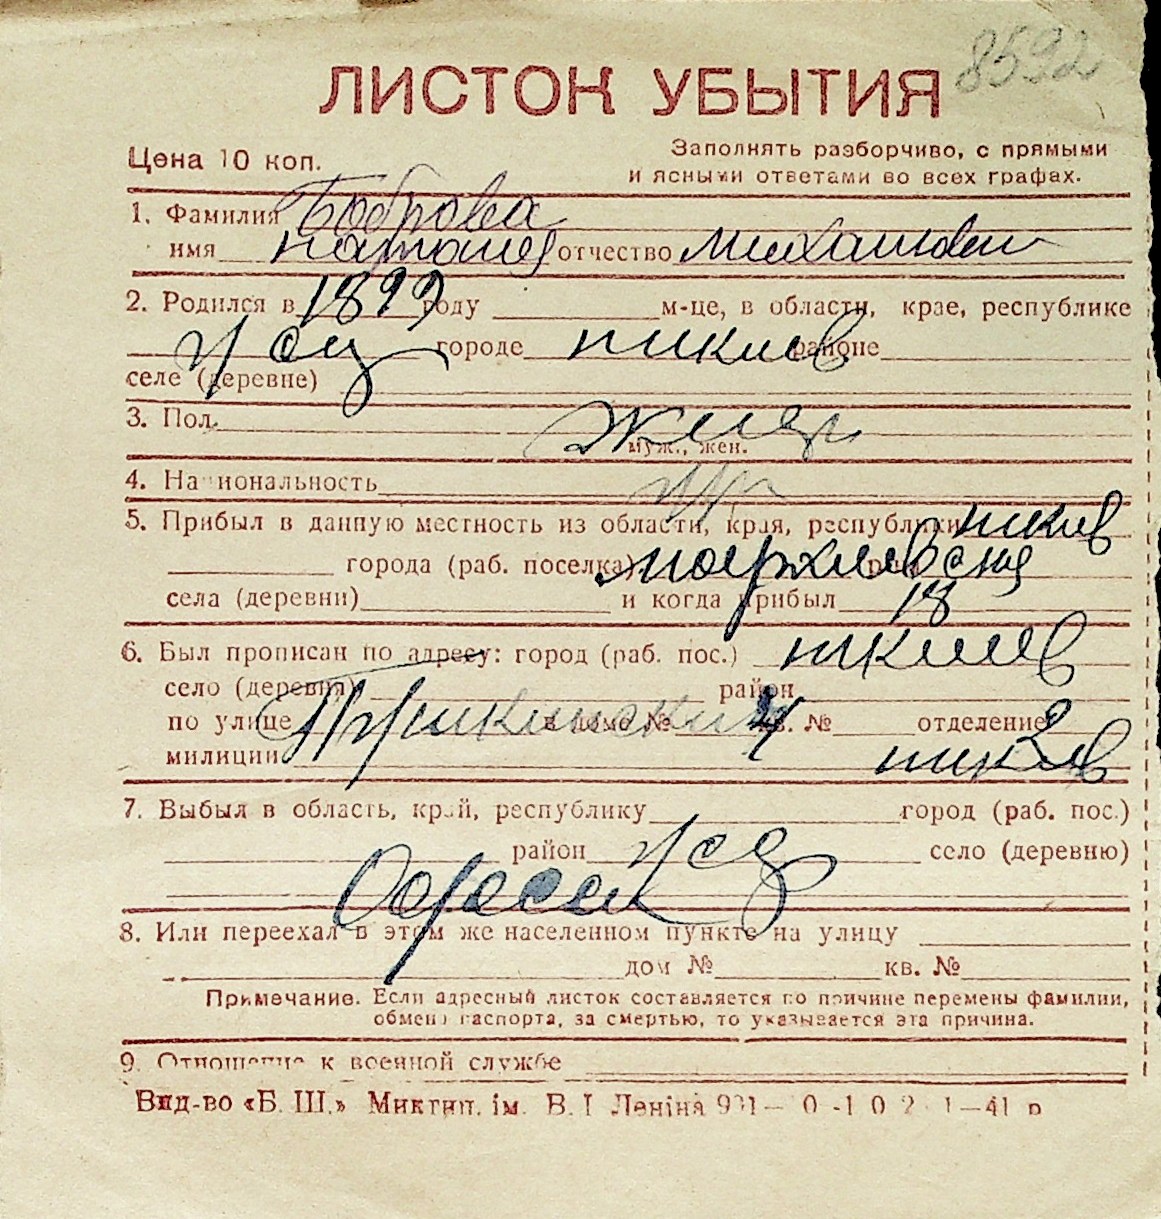 8592
ЛИСТОК УБЫТИЯ
Цена 10 коп.
Заполнять разборчиво, с прямыми
и ясными ответами во всех графах.
1. Фамилия Боброва
имя Наталия отчество Михайловн
2. Родился в 1899 году м-це, в области, крае, республике
УССР городе Никлев районе
селе (деревне)
3. Пол. жен
муж., жен.
4. Национальность
5. Прибыл в данную местность из области, края, республики Нклев
города (раб. поселка)
села (деревни) и когда прибыл 18
6. Был прописан по адресу: город (раб. пос.) Никлев
село (деревня) район
по улице Пушкинский в доме № 4 кв. № отделение 2
милиции Никлев
7. Выбыл в область, край, республику город (раб. пос.)
район УССР село (деревню)
Одесск
8. Или переехал в этом же населенном пункте на улицу
дом № кв. №
Примечание. Если адресный листок составляется по причине перемены фамилии,
обмена паспорта, за смертью, то указывается эта причина.
9. Отношение к военной службе
Вид-во «Б. Ш.» Миктип. ім. В. І Леніна